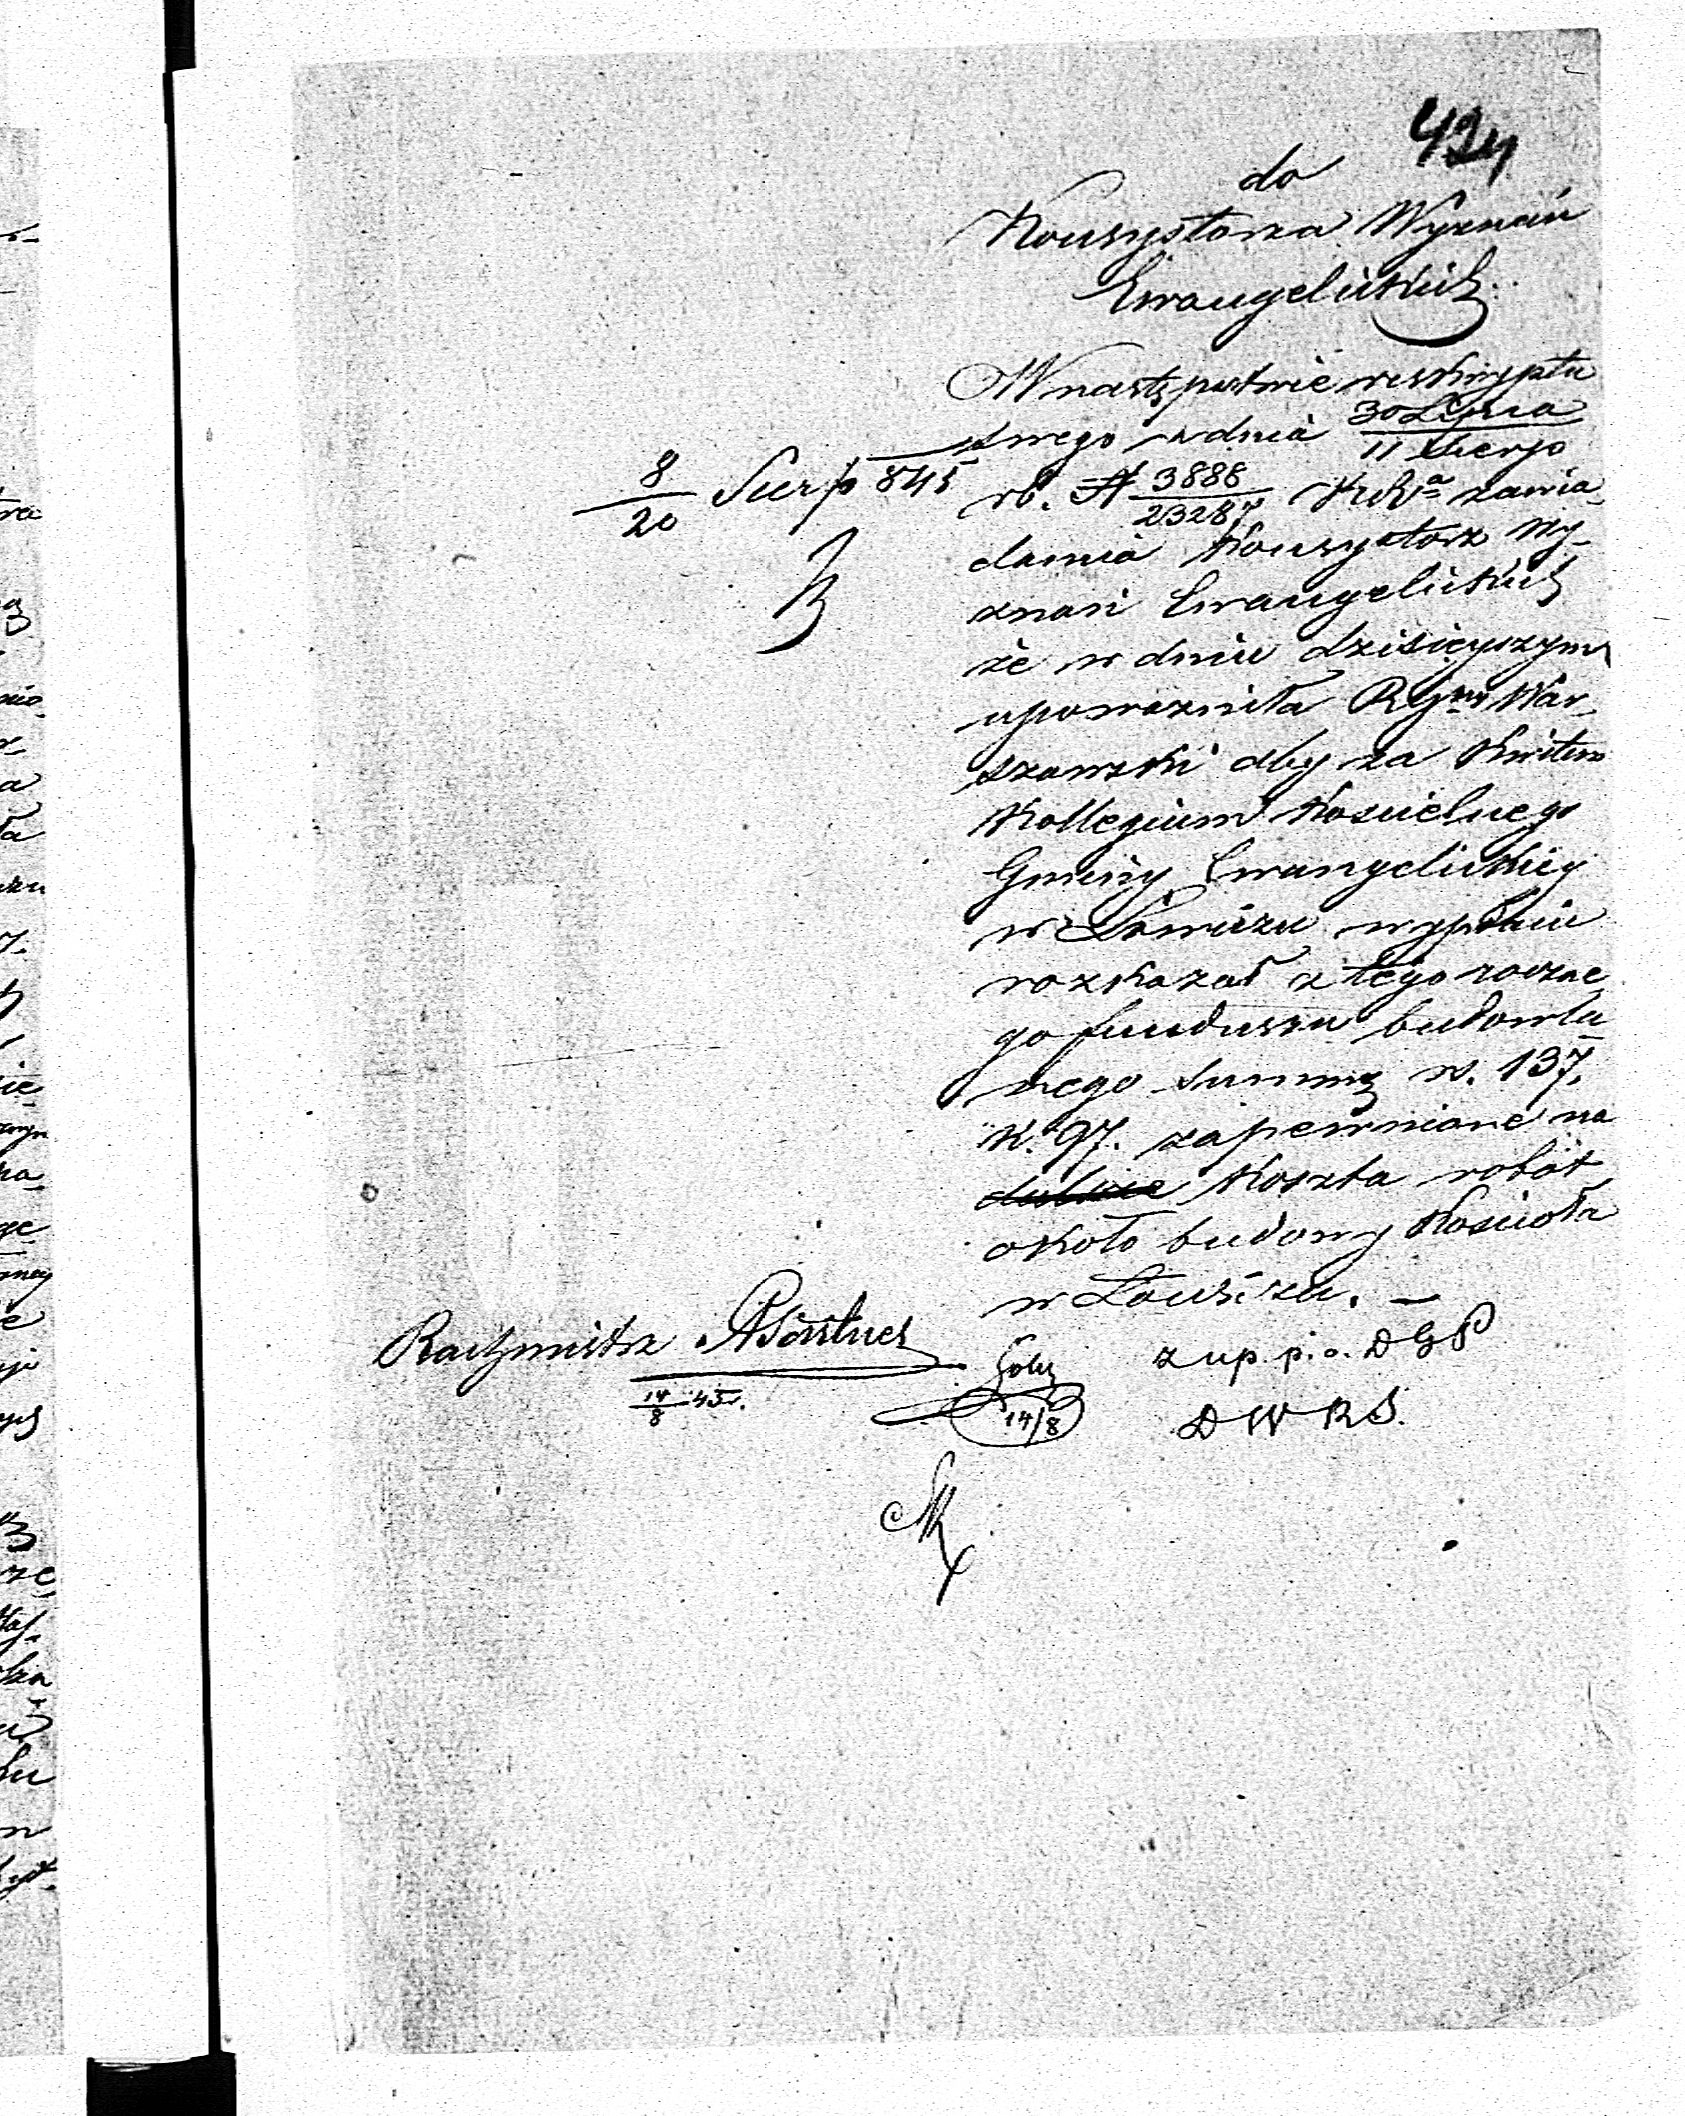 424
do
Konsystorza Wyznań
Ewangelickich
W następstwie reskryptu
swego z dnia 30 Lipca / 11 Sierp
8/20 Sierp 845
rb. N 3888/23287 KRa zawia-
damia Konsystorz Wy-
znań Ewangelickich
że w dniu dzisieyszym
upoważniła Rząd War-
szawski aby za kwitem
Kollegium Kościelnego
Gminy Ewangelickiey
w Łowiczu wypłacić
rozkazał z tegoroczne-
go funduszu budowla-
nego summę rs. 137.
k. 97. zapewnione na
dalsze koszta robót
około budowy Kościoła
w Łowiczu. —
Rachmistrz
14/8 45.
14/8
z up. p. o. D G P
D W R S.